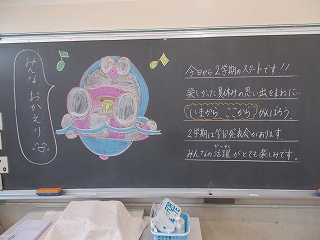 みんな おかえり
今日から2学期のスタートです!!
楽しかった夏休みの思い出をむねに…
いまから ここから がんばろう
2学期は学習発表会があります。
みんなの活躍がとても楽しみです。
かつやく